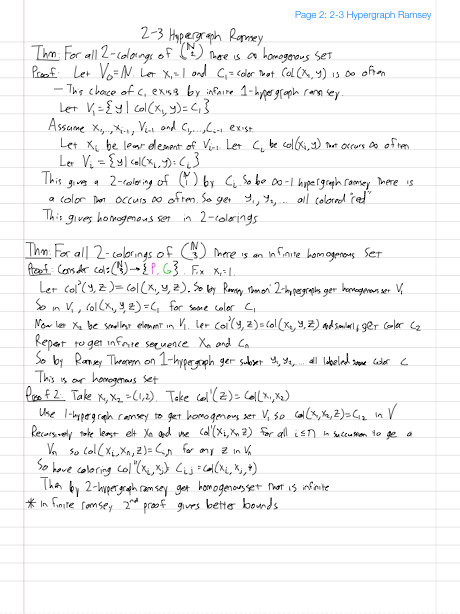 Page 2: 2-3 Hypergraph Ramsey
2-3 Hypergraph Ramsey
Thm: For all 2-colorings of (N 2) there is ∞ homogenous set
Proof: Let V₀=N. Let X₁=1 and C₁=color that Col(X₁,y) is ∞ often
– This choice of C₁ exists by infinite 1-hypergraph ramsey.
Let V₁={y| col(X₁,y)=C₁}
Assume X₁,...,Xᵢ₋₁, Vᵢ₋₁ and C₁,...,Cᵢ₋₁ exist.
Let Xᵢ be least element of Vᵢ₋₁. Let Cᵢ be col(Xᵢ,y) that occurs ∞ often
Let Vᵢ={y| col(Xᵢ,y)=Cᵢ}
This gives a 2-coloring of (N 1) by Cᵢ. So be ∞-1 hypergraph ramsey there is
a color that occurs ∞ often. So get y₁, y₂, ... all colored "red"
This gives homogenous set in 2-colorings
Thm: For all 2-colorings of (N 3) there is an infinite homogenous set
Proof: Consider col:(N 3)→{P,G}. Fix X₁=1.
Let col'(y,z)=col(X₁,y,z). So by Ramsey thm on 2-hypergraphs get homogenous set V₁
So in V₁, col(X₁,y,z)=C₁ for some color C₁
Now let X₂ be smallest element in V₁. Let col'(y,z)=col(X₂,y,z) and similarly get color C₂
Repeat to get infinite sequence Xₙ and Cₙ
So by Ramsey Theorem on 1-hypergraph get subset y₁,y₂,... all labeled some color C
This is our homogenous set
Proof 2: Take X₁,X₂=(1,2). Take col'(z)=Col(X₁,X₂)
Use 1-hypergraph ramsey to get homogenous set V, so col(X₁,X₂,z)=C₁₂ in V
Recursively take least elt Xₙ and use col'(Xᵢ,Xₙ,z) for all i≤n in succession to ge a
Vₙ so col(Xᵢ,Xₙ,z)=Cᵢ,ₙ for any z in Vₙ
So have coloring Col''(Xᵢ,Xⱼ) Cᵢ,ⱼ=col(Xᵢ,Xⱼ,*)
Then by 2-hypergraph ramsey get homogenous set that is infinite
* In finite ramsey 2nd proof gives better bounds